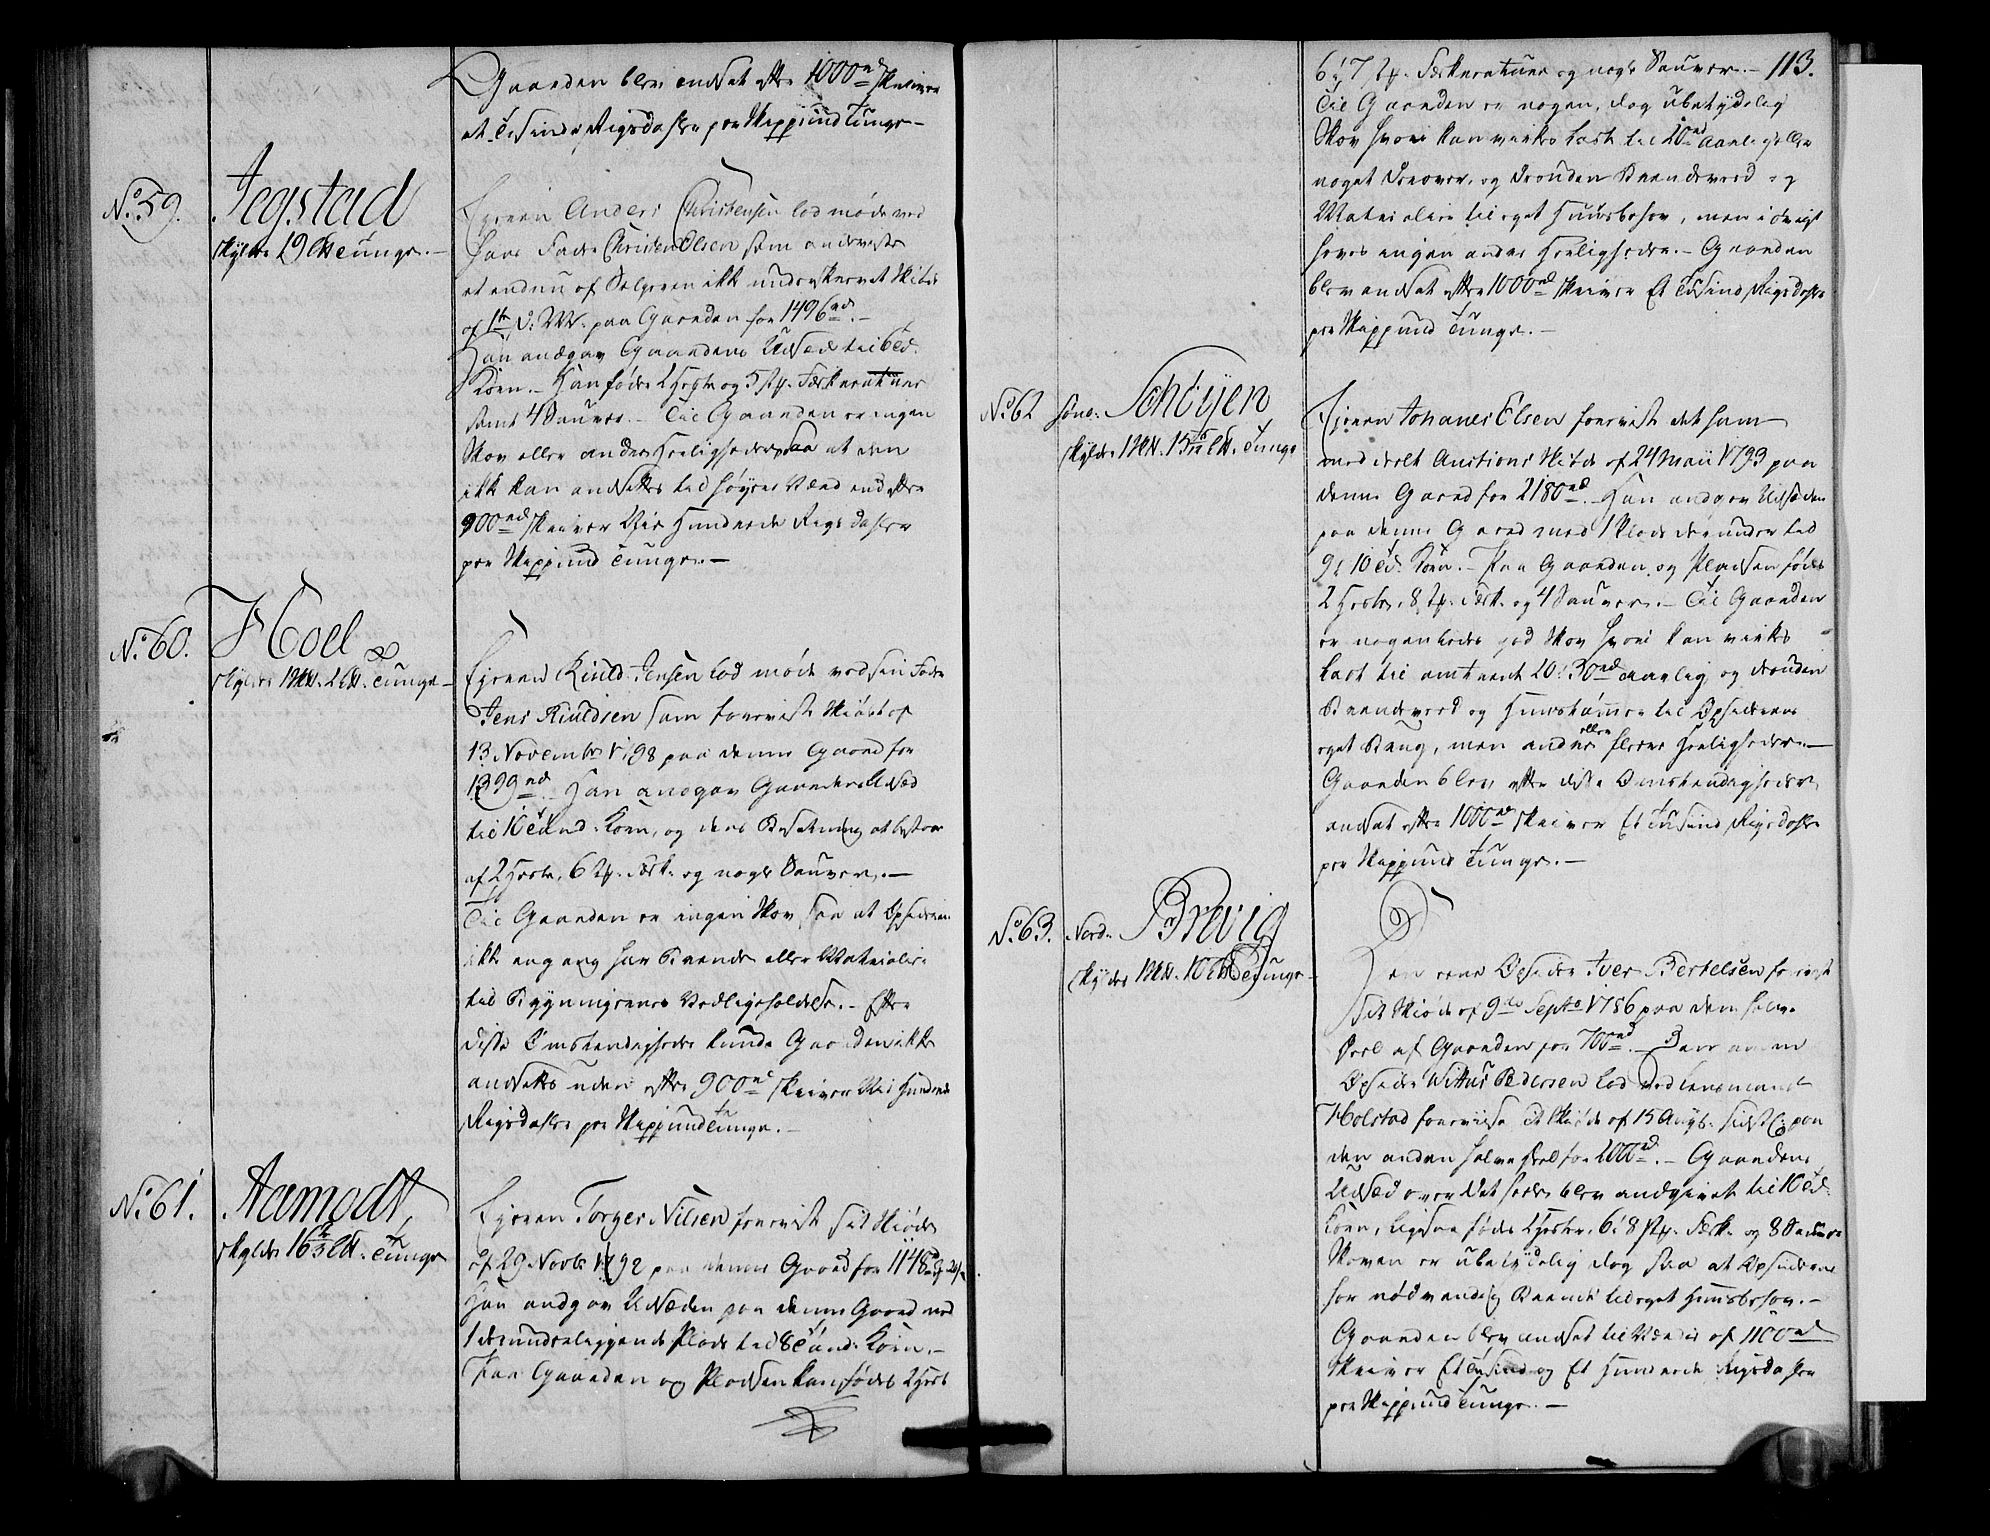 Gaarden blev ansat efter 1000 rd skriver
et Tusinde Rigsdaler per Skippund Tunge.
No. 59. Jegstad
skylder 19 L℔ Tunge.
Ejeren Anders Christensen lod møde ved
hans Fader Christen Elsen som anviiste
et endnu af Sælgeren ikke underskrevet Skiøde
af 1te paa Gaarden for 1496 rd.
Han andgav Gaardens Udsæd til 6 Td.
Korn. Han føder 2 Heste og 5 St. Fæekreature
samt 4 Sauver. Til Gaarden er ingen
Skov eller andre Herligheder saa at den
ikke kan ansættes til høyere Værd end efter
900 rd skriver Nie Hundrede Rigsdaler
per Skippund Tunge.
No. 60. Hoel
skylder 1 S℔ 2 L℔ Tunge
Ejeren Kiuld Jensen lod møde ved sin Fader
Jens Kiuldsen som foreviste Skiøde af
13 November 1798 paa denne Gaard for
1399 rd. Han andgav Gaardens Udsæd
til 10 Tønd. Korn, og dens Besætning at bestaae
af 2 Heste, 6 St. Fæek. og nogle Sauver.
Til Gaarden er ingen Skov, saa at Opsidderen
ikke engang har Brænde eller Materialier
til Bygningernes Vedligeholdelse. Efter
disse Omstændigheder kunde Gaarden ikke
ansættes uden efter 900 rd skriver Nie Hundrede
Rigsdaler per Skippund Tunge.
No. 61. Aamodt,
skylder 16⅔ L℔ Tunge
Ejeren Torger Nilsen foreviste sit Skiøde
af 29 Novbr 1792 paa denne Gaard for 1148 rd
Han andgav Udsæden paa denne Gaard med
1 derunderliggende Plads til 8 Tønd. Korn.
Paa Gaarden og Pladsen kan fødes 2 Heste
113.
6 á 7 St. Fæekreature og nogle Sauver.
Til Gaarden er nogen, dog ubetydelig
Skov hvori kan virkes Last til 20 rd Aarlig eller
noget derover, og desuden Brændeved og
Materialier til eget Huusbehov, men i øvrigt
haves ingen andre Herligheder. Gaarden
blev ansat efter 1000 rd skriver Et Tusind Rigsdaler
per Skippund Tunge.
No. 62 søndr. Schöyen
skylder 1 S℔ 15 L℔ Tunge
Ejeren Johanes Elsen foreviste det ham
meddeelte Auctions Skiøde af 24 Maii 1793 paa
denne Gaard for 2180 rd. Han andgav Udsæden
paa denne Gaard med 1 Plads derunder til
9 á 10 Td. Korn. Paa Gaarden og Pladsen fødes
2 Heste, 8 St. Fæek. og 4 Sauver. Til Gaarden
er nogenledes god Skov hvori kan virkes
Last til omtrent 20 á 30 rd aarlig, og desuden
Brændeved og Huustømmer til Opsidderens
eget Brug, men andre eller fleere Herligheder
Gaarden blev efter disse Omstændigheder
ansat efter 1000 rd skriver Et Tusind Rigsdaler
per Skippund Tunge.
No. 63. Nord. Brevig
skylder 1 S℔ 10 L℔ Tunge
Den eene Opsidder Iver Bertelsen foreviste
sit Skiøde af 9de Septr 1786 paa den halve
Deel af Gaarden for 700 rd. Den anden
Opsidder Wittus Pedersen lod ved Lensmand
Holstad foreviise et Skiøde af 15 Augs. sidstl. paa
den anden halve Deel for 2000 rd. Gaardens
Udsæd over det heele blev andgivet til 10 Td.
Korn, ligesaa føder 2 Heste, 6 á 8 St. Fæek. og 8 Sauver
Skoven er ubetydelig dog saa at Opsidderne
har nødvendig Brænde til eget Huusbehov.
Gaarden blev ansat til Værdie af 1100 rd
skriver Et Tusind og Et Hundrede Rigsdaler
per Skippund Tunge.